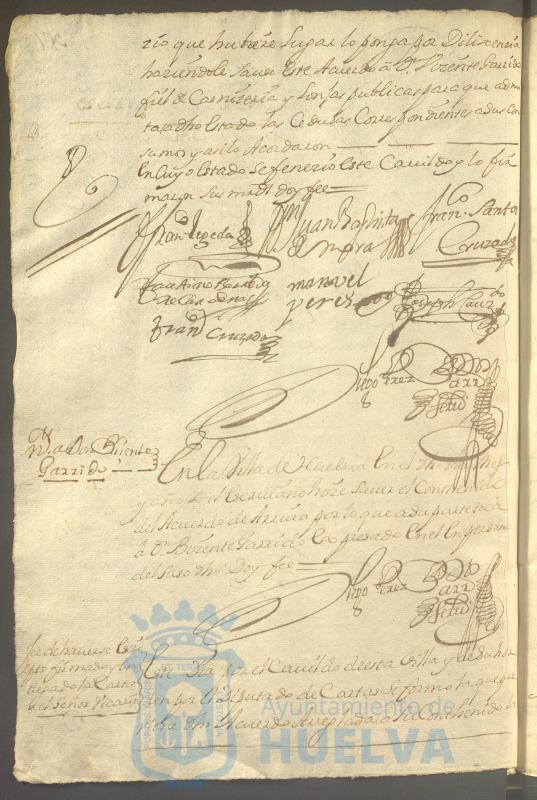 rio que hubiere lugar lo ponga por Dilixencia
haziendole saver Este Acuerdo a Dn. Vizente Garrido
fiel de Carnizeria y lonjas publicas para que
ta a dho Estado las Cedulas Correspondientes a dus Con
sumos y asi lo Acordaron
En Cuyo Estado Se fenezio Este Cavildo y lo fir
maron Sus mrds doy fee
Fran Zepeda
Juan Baptista
de Mora
Fran. Santos
Cruzado
Faustino
de Cardenas
manuel
perez
Joseph
Fran Cruzado
Diego Perez
Na. a Don Bizente
Garrido
En la Villa de Huelva En el dho dia Mes
y año Yo el Escrivano hize Saver el Conthenido
del Acuerdo de Arriva por lo que a su parte toca
a Dn. Bizente Garrido Expresado En el En persona
del Suso dho Doy fee
Diego Perez
fee de haverse
firmado y En
tregado la Carta
al Señor Vicario
Este Dia por el Cavildo de esta Villa y
por el Diputado de Cartas se formo la que
dho Acuerdo Arreglada a Su Conthenido la
Ayuntamiento de
HUELVA